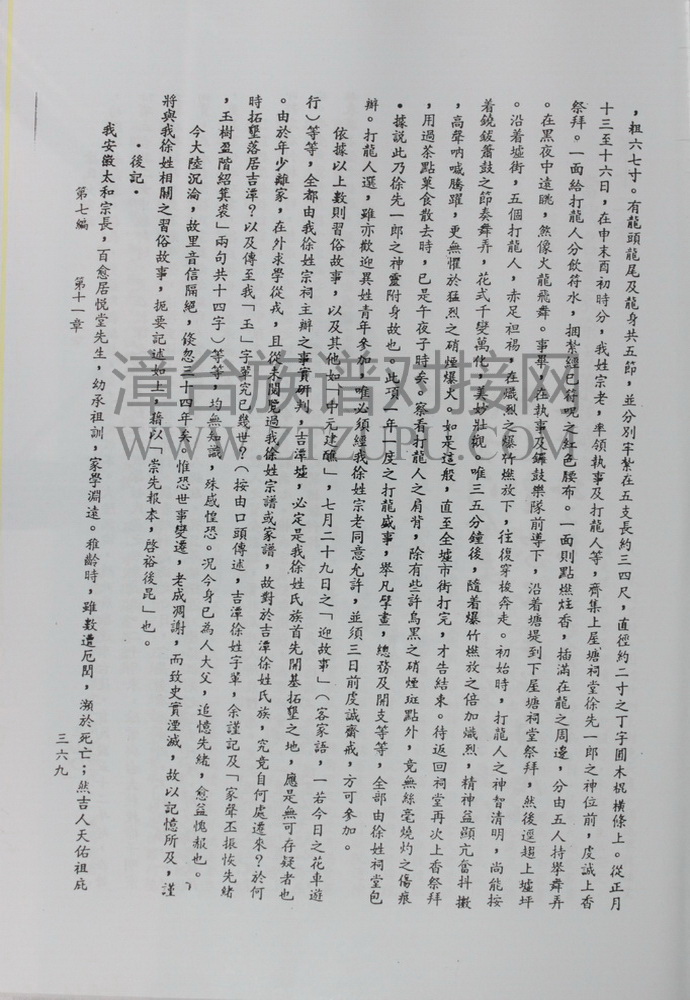 ，粗六七寸。有龍頭龍尾及龍身共五節，並分別牢紮在五支長約三四尺，直徑約二寸之丁字圓木棍橫條上。從正月
十三至十六日，在申末酉初時分，我姓宗老，率領執事及打龍人等，齊集上屋塘祠堂徐先一郎之神位前，虔誠上香
祭拜。一面給打龍人分飲符水，捆紮經已符呪之紅色腰布。一面則點燃炷香，插滿在龍之周邊，分由五人持舉舞弄
。在黑夜中遠眺，煞像火龍飛舞。事畢，在執事及鑼鼓樂隊前導下，沿着塘堤到下屋塘祠堂祭拜，然後逕趨上墟坪
。沿着墟街，五個打龍人，赤足袒裼，在熾烈之爆竹燃放下，往復穿梭奔走。初始時，打龍人之神智清明，尚能按
着鐃鈸簫鼓之節奏舞弄，花式千變萬化，美妙壯觀。唯三五分鐘後，隨着爆竹燃放之倍加熾烈，精神益顯亢奮抖擻
，高聲吶喊騰躍，更無懼於猛烈之硝煙爆火。如是這般，直至全墟市街打完，才告結束。待返回祠堂再次上香祭拜
，用過茶點菓食散去時，已是午夜子時矣。察看打龍人之肩背，除有些許烏黑之硝煙斑點外，竟無絲毫燒灼之傷痕
。據說此乃徐先一郎之神靈附身故也。此項一年一度之打龍盛事，舉凡擘畫，總務及開支等等，全部由徐姓祠堂包
辦。打龍人選，雖亦歡迎異姓青年參加，唯必須經我徐姓宗老同意允許，並須三日前虔誠齋戒，方可參加。
依據以上數則習俗故事，以及其他如「中元建醮」，七月二十九日之「迎故事」（客家語，一若今日之花車遊
行）等等，全都由我徐姓宗祠主辦之事實研判，吉潭墟，必定是我徐姓氏族首先開基拓墾之地，應是無可存疑者也
。由於年少離家，在外求學從戎，且從未閱覽過我徐姓宗譜或家譜，故對於吉潭徐姓氏族，究竟自何處遷來？於何
時拓墾落居吉潭？以及傳至我「玉」字輩究已幾世？（按由口頭傳述，吉潭徐姓字輩，余謹記及「家聲丕振恢先緒
，玉樹盈階紹箕裘」兩句共十四字）等等，均無知識，殊感惶恐。况今身已為人大父，追憶先緒，愈益愧赧也。
今大陸沉淪，故里音信隔絕，倐忽三十四年矣。惟恐世事變遷，老成凋謝，而致史實湮滅，故以記憶所及，謹
將與我徐姓相關之習俗故事，扼要記述如上，藉以「崇先報本，啓裕後昆」也。
•後記•
我安徽太和宗長，百愈居悅堂先生，幼承祖訓，家學淵遠。稚齡時，雖數遭厄閔，瀕於死亡；然吉人天佑祖庇
第七編　第十一章
三六九
漳台族谱对接网
WWW.ZTZUPU.COM